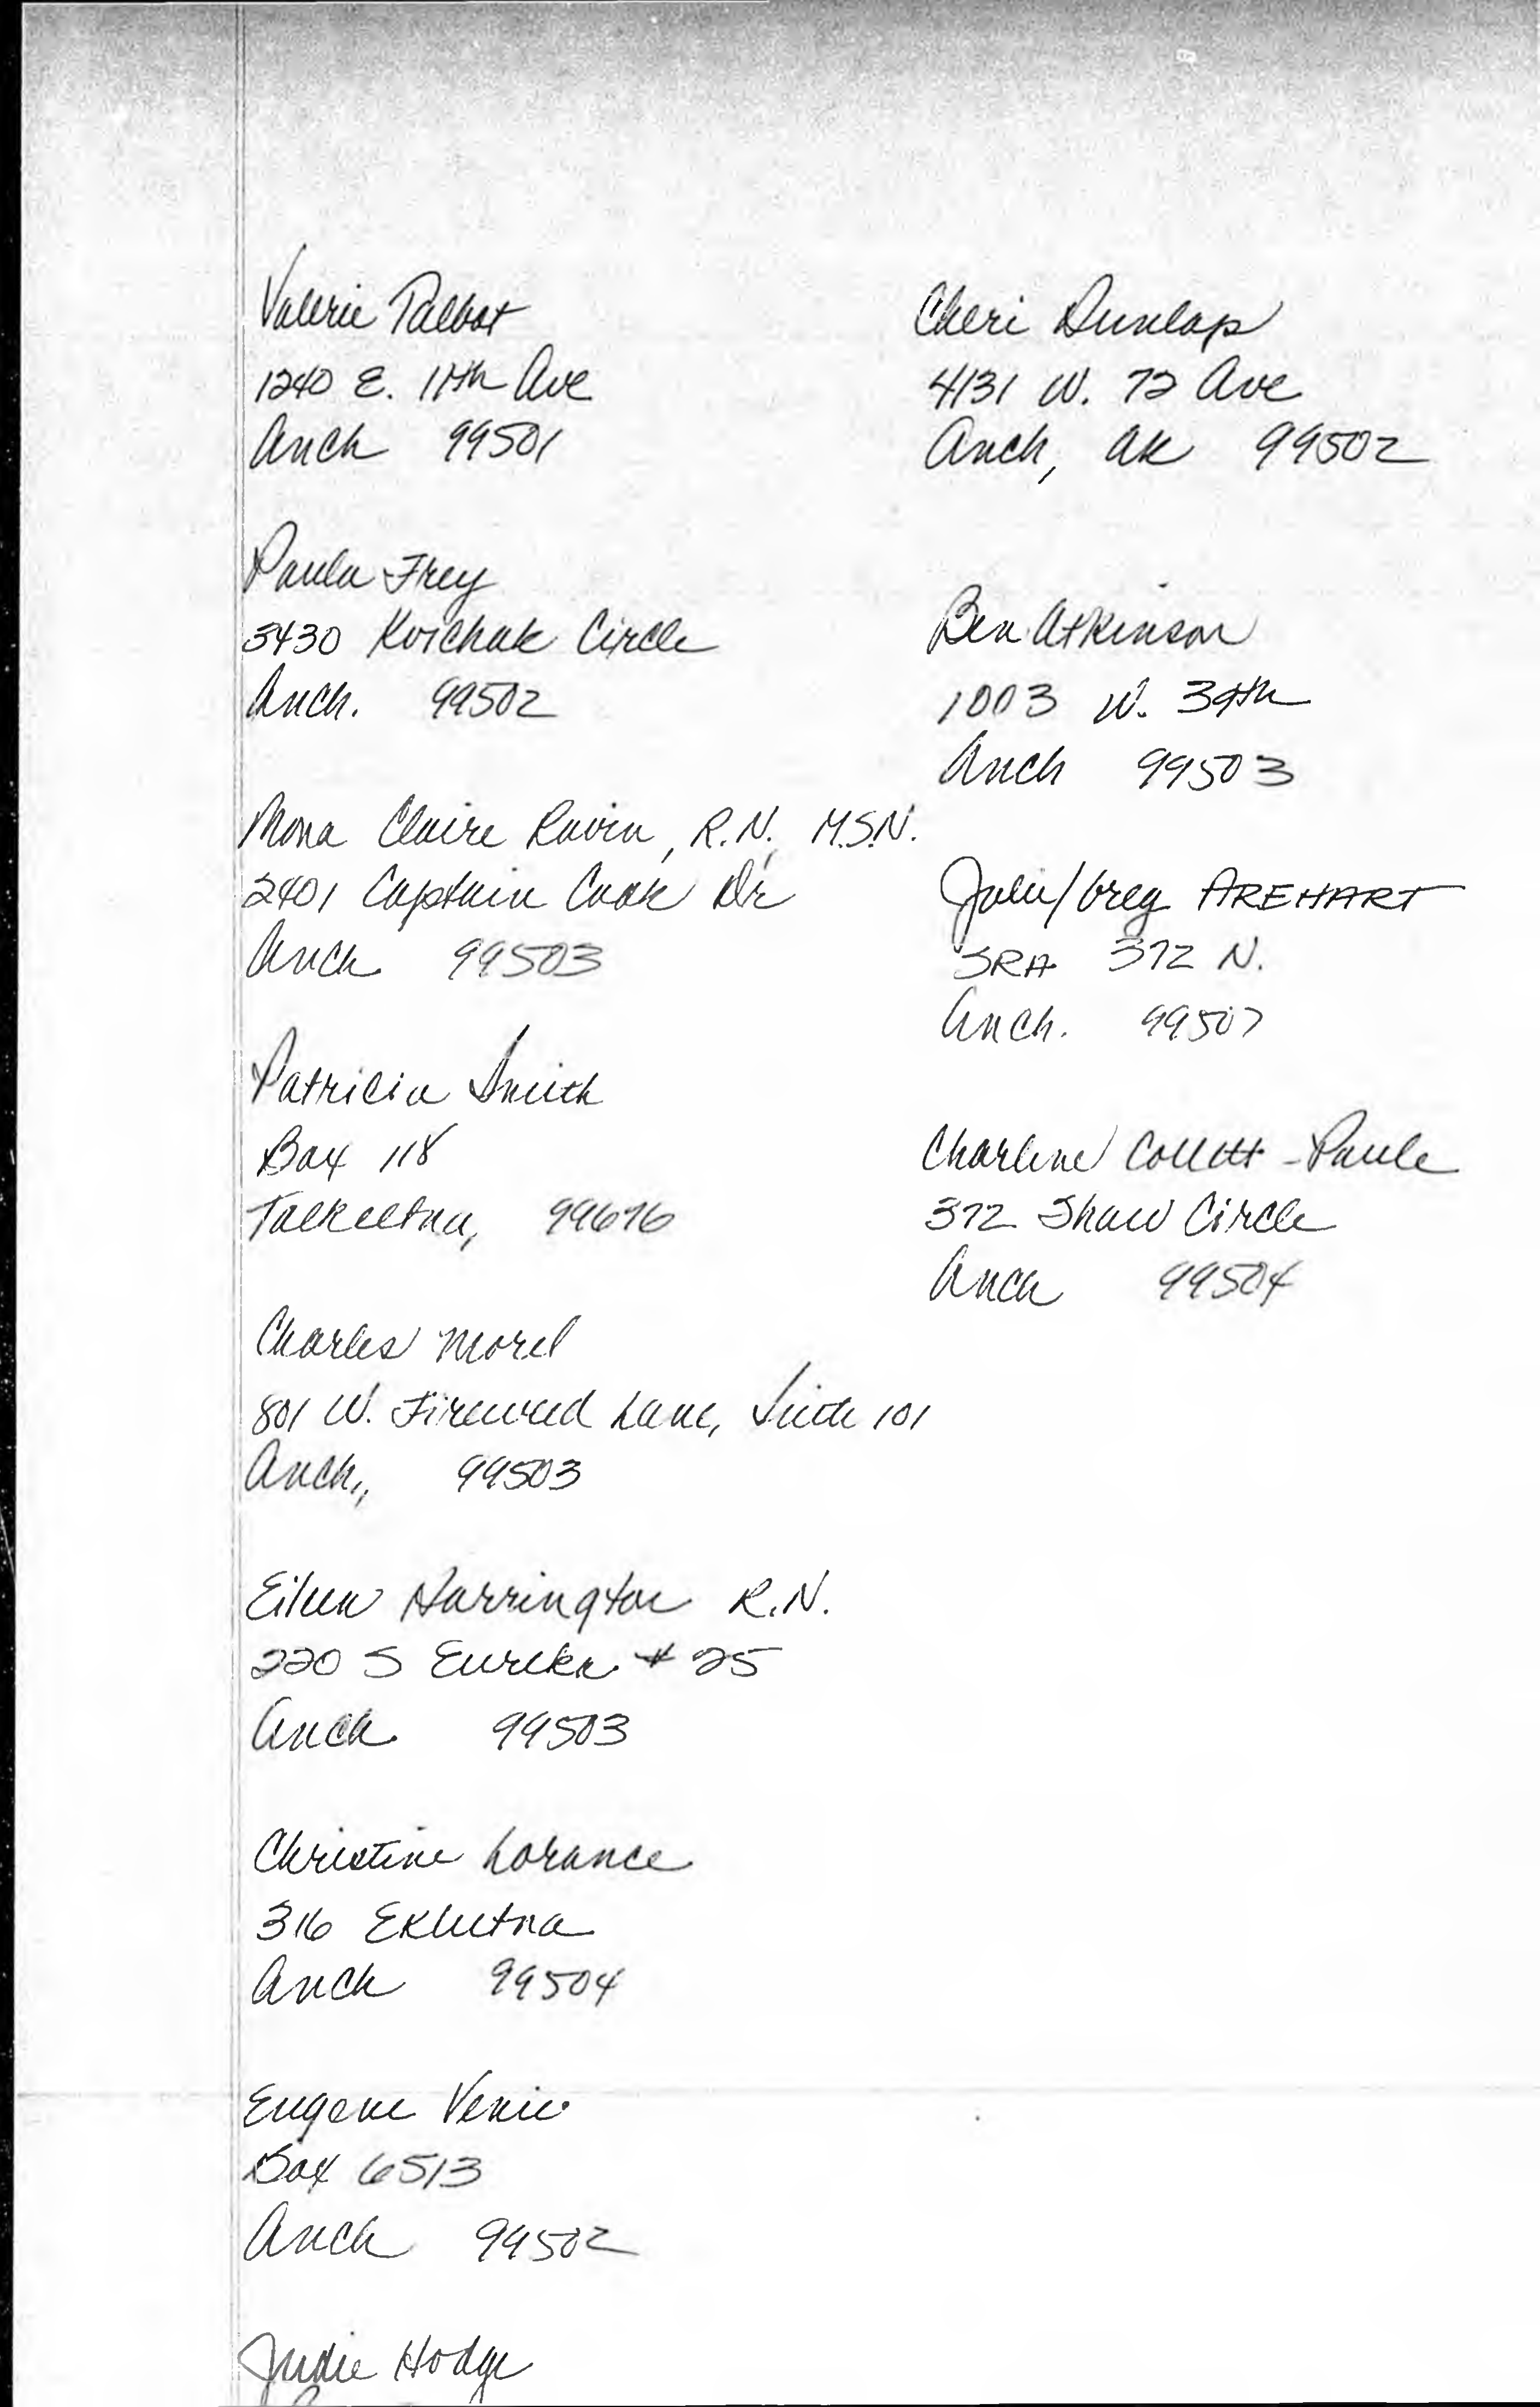 Valerie Talbot
1240 E. 11th Ave
Anch 99501
Paula Frey
3430 Kvichak Circle
Anch. 99502
Mona Claire Ravin, R.N., M.S.N.
2401 Captain Cook Dr
Anch 99503
Patricia Smith
Box 118
Talkeetna, 99676
Charles Morel
801 W. Fireweed Lane, Suite 101
Anch., 99503
Eileen Harrington R.N.
220 S Eureka # 25
Anch 99503
Christine Lorance
316 Eklutna
Anch 99504
Eugene
Box 6513
Anch 99502
Judie Hodge
Cheri Dunlap
4131 W. 72 Ave
Anch, AK 99502
Ben Atkinson
1003 W.
Anch 99503
Julie/Greg AREHART
SRA 372 N.
Anch. 99507
Charlene Collett-Paule
372 Shaw Circle
Anch 99504